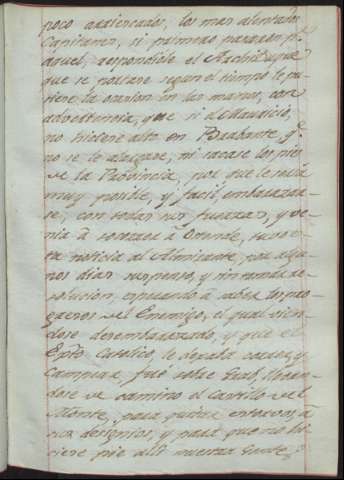 poco arriesgados, los mas alentados
Capitanes, si primero pasasen pr
aquel, respondiole el Archiduque
que se portase segun el tiempo le pu-
siese la ocasion en las manos, con
advertencia, que si el Mauricio,
no hiciese alto en Brabante, qe
no se le atacase, ni sacase los pies
de la Provincia, por que le seria
muy posible, y facil, embarazar-
se, con todas sus fuerzas, y ve-
nia á socorrer á Ostende, tuvo es-
ta noticia al Almirante, por algu-
nos dias suspenso, y sin tomar re-
solucion, esperando á saber los pro-
gresos del Enemigo, el qual vien-
dose desembarazado, y que el
Expto Catolico, le dejaba correr, y
Campear, fué sobre Grab, llevan-
dose de camino el Castillo de
Almte, para quitar estorvos, á
sus designios, y para que no hi-
ciese pie alli nuestra Gente,